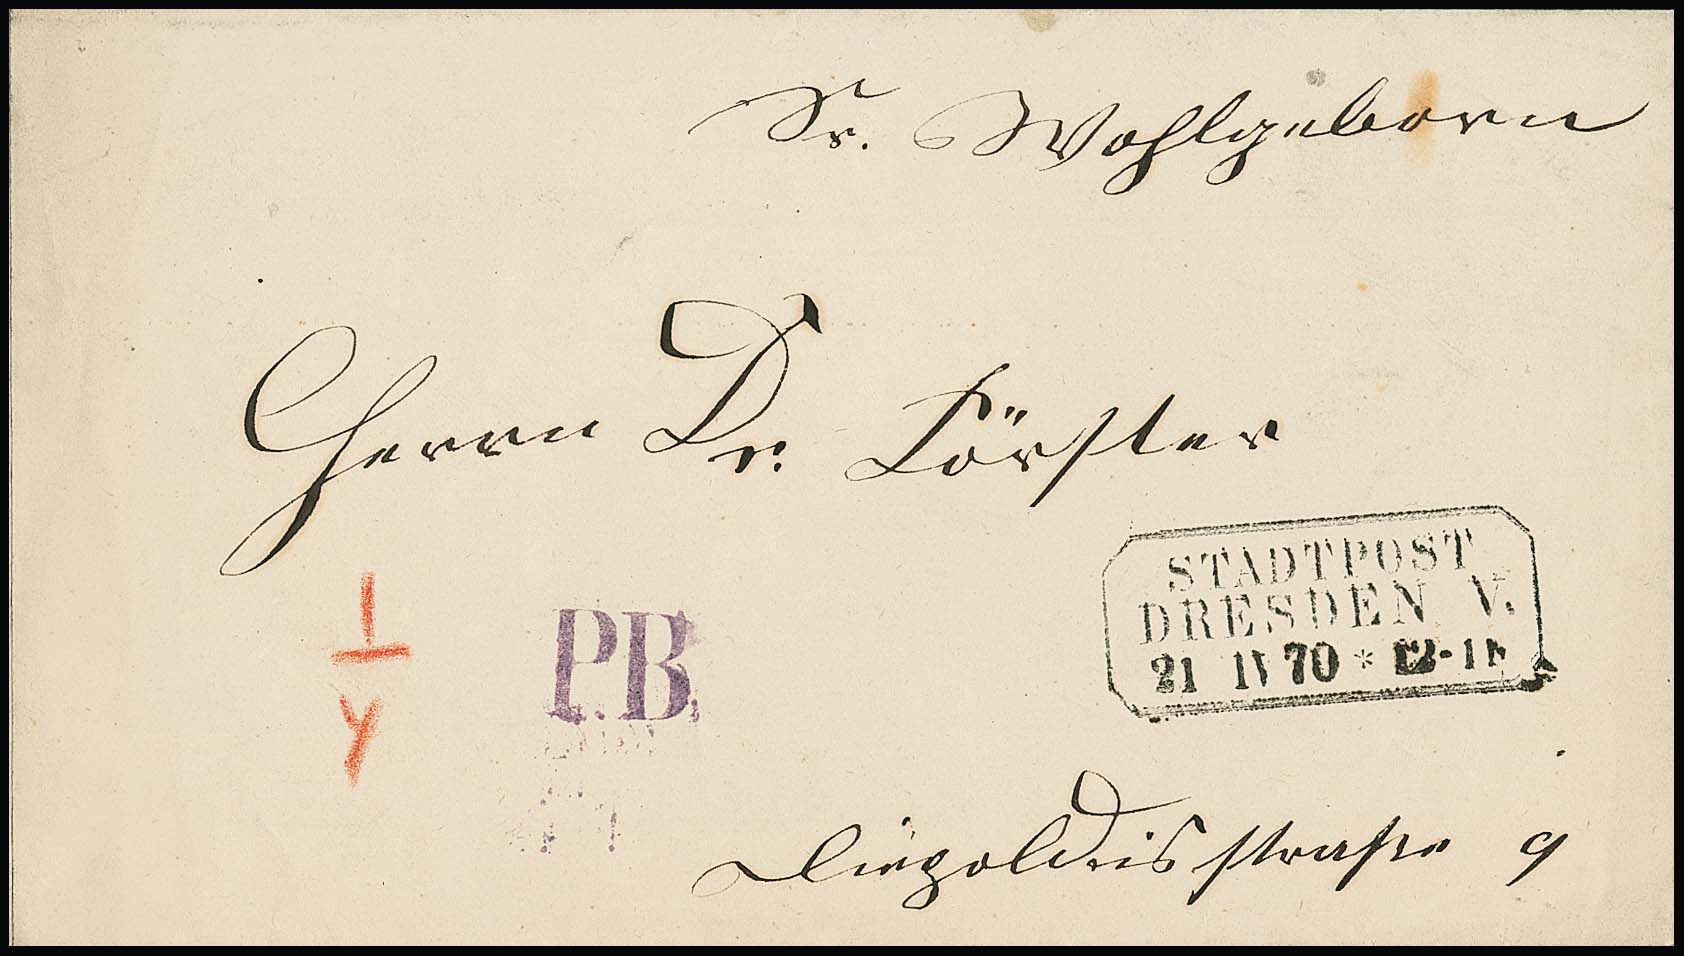 Sr. Wohlgeborn
Herrn Dr. Förster
STADTPOST
DRESDEN V.
21 IV 70 *
1
P.B.
Y
Diepoldisstraße 9